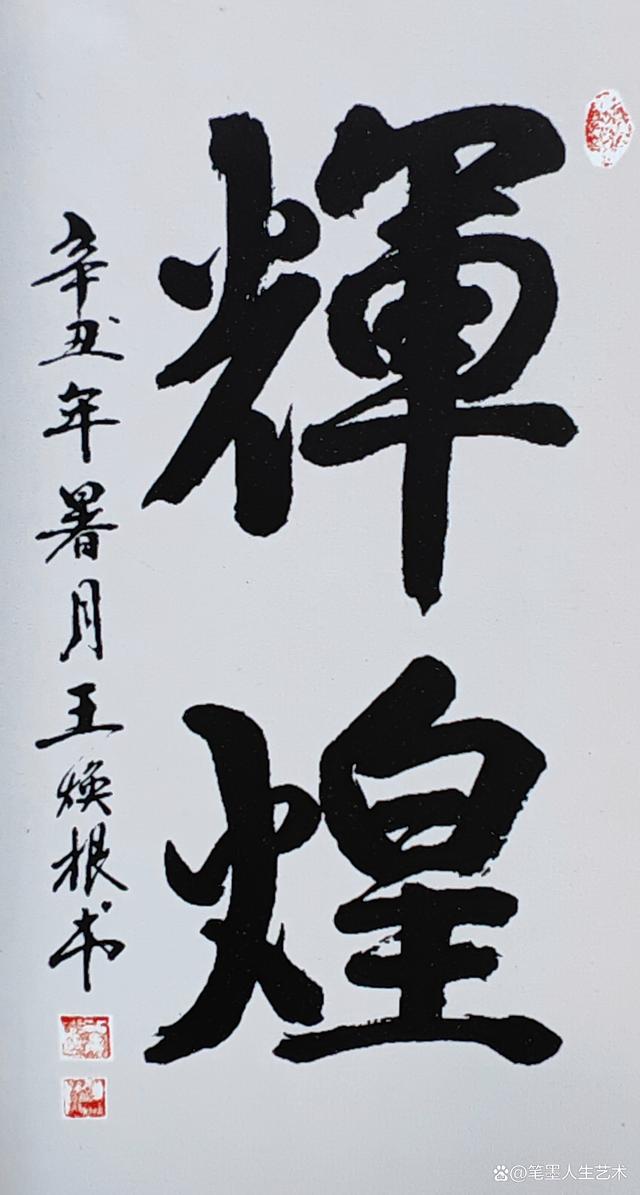 輝煌
辛丑年暑月王焕根书
@笔墨人生艺术